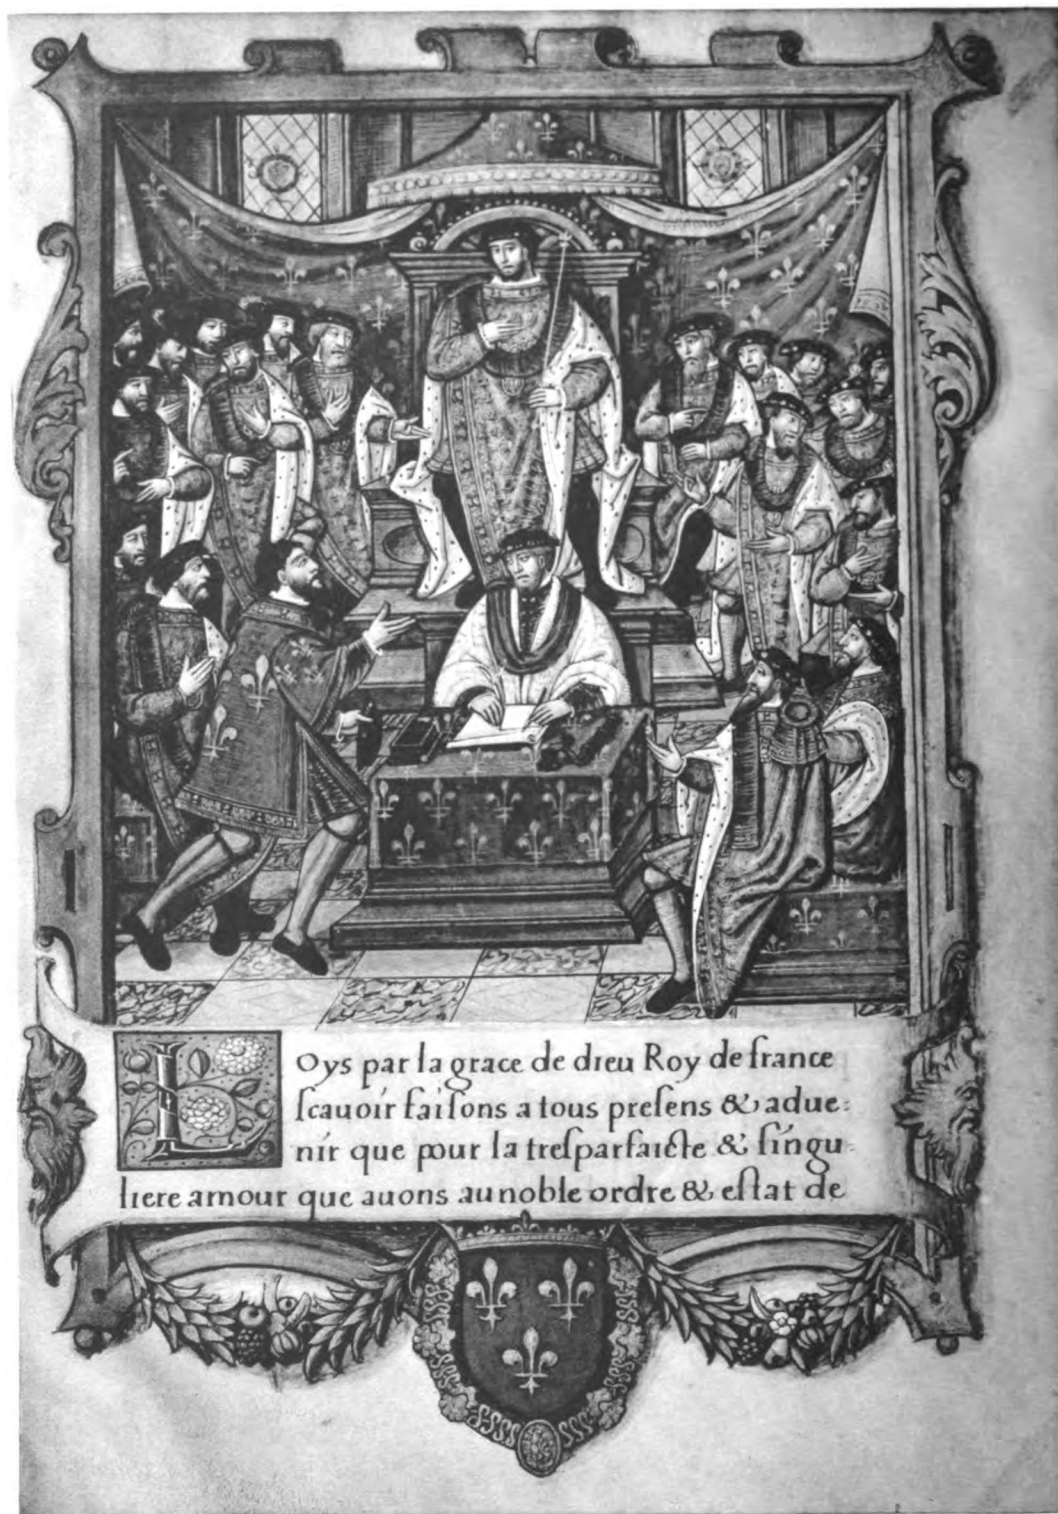 Loys par la grace de dieu Roy de france
ſcauoir faiſons a tous preſens & adue:
nir que pour la treſparfaicte & ſingu-
liere amour que auons au noble ordre & eſtat de